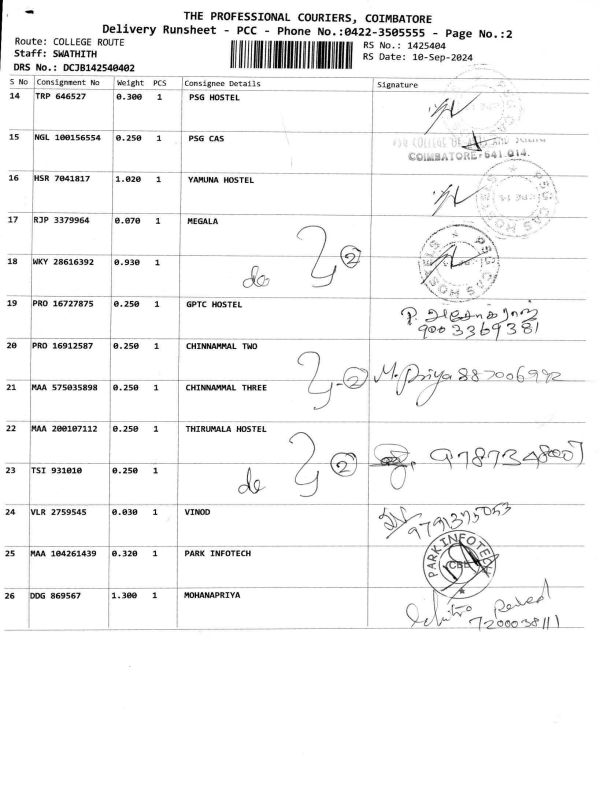 THE PROFESSIONAL COURIERS, COIMBATORE
Delivery Runsheet - PCC - Phone No.:0422-3505555 - Page No.:2
Route: COLLEGE ROUTE RS No.: 1425404
Staff: SWATHITH RS Date: 10-Sep-2024
DRS No.: DCJB142540402
S No Consignment No Weight PCS Consignee Details Signature
14 TRP 646527 0.300 1 PSG HOSTEL
15 NGL 100156554 0.250 1 PSG CAS
COIMBATORE-641 014.
16 HSR 7041817 1.020 1 YAMUNA HOSTEL
17 RJP 3379964 0.070 1 MEGALA
18 WKY 28616392 0.930 1 do 2
19 PRO 16727875 0.250 1 GPTC HOSTEL
9003369381
20 PRO 16912587 0.250 1 CHINNAMMAL TWO
2 M. Priya 887006992
21 MAA 575035898 0.250 1 CHINNAMMAL THREE
22 MAA 200107112 0.250 1 THIRUMALA HOSTEL
23 TSI 931010 0.250 1 do 2
24 VLR 2759545 0.030 1 VINOD
9791375053
25 MAA 104261439 0.320 1 PARK INFOTECH
PARK INFOTECH
CBE
26 DDG 869567 1.300 1 MOHANAPRIYA
7200038111